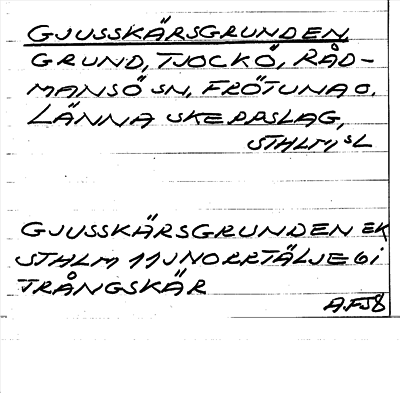 GJUSSKÄRSGRUNDEN,
GRUND, TJOCKÖ, RÅD-
MANSÖ SN, FRÖTUNA O.
LÄNNA SKEPPSLAG,
STHLMS L
GJUSSKÄRSGRUNDEN EK
STHLM 11J NORRTÄLJE 6i
TRÅNGSKÄR
A.F.58